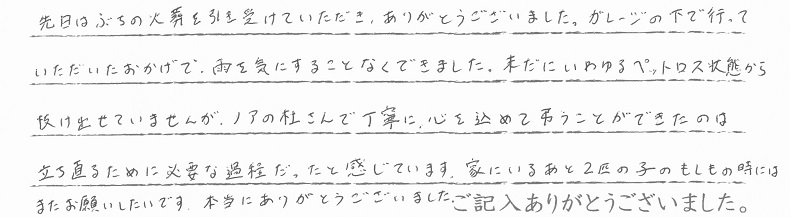 先日はぶちの火葬を引き受けていただき、ありがとうございました。ガレージの下で行って
いただいたおかげで、雨を気にすることなくできました。未だにいわゆるペットロス状態から
抜け出せていませんが、ノアの杜さんで丁寧に、心を込めて弔うことができたのは
立ち直るために必要な過程だったと感じています。家にいるあと2匹の子のもしもの時には
またお願いしたいです。本当にありがとうございました。ご記入ありがとうございました。